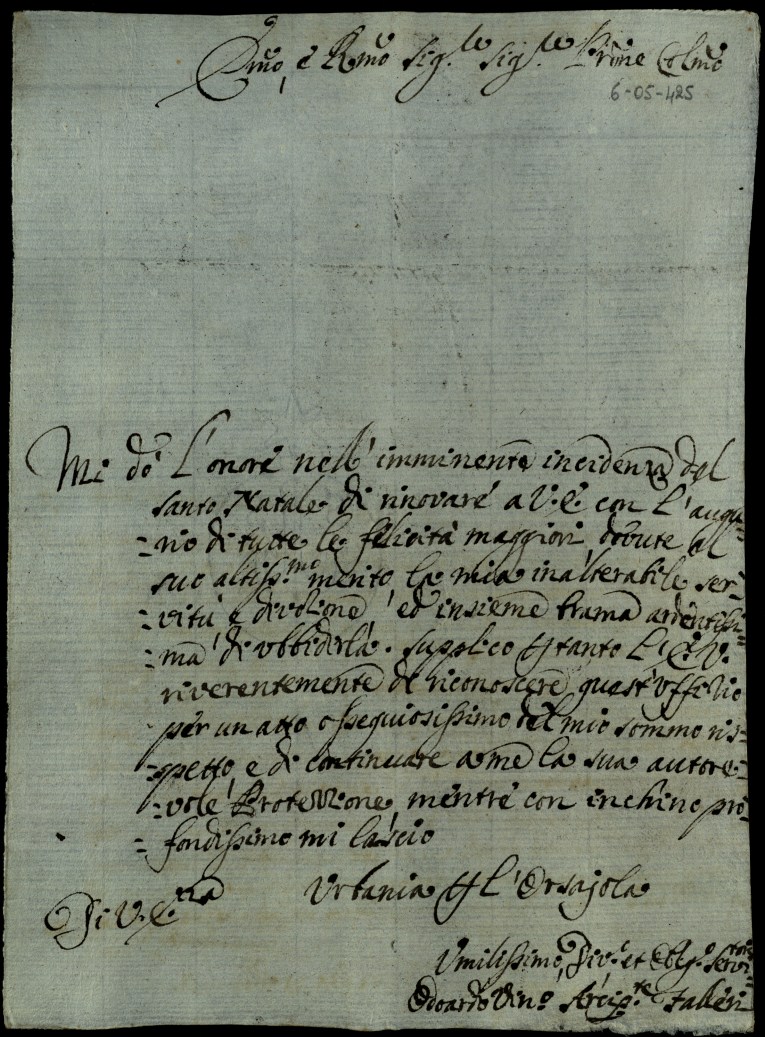 Emo, e Rmo Sig.re Sig.re Prone Colmo
6-05-425
Mi dò l'onore nell'imminente incidenza del
santo Natale di rinovare a V.E. con l'augu
=rio di tutte le felicità maggiori dovute al
suo altiss.mo merito la mia inalterabile ser=
=vitù e divozione, ed insieme brama ardentissi
=ma di ubbidirla. Supplico
riverentemente di riconoscere quest'uffizio
per un atto ossequiosissimo del mio sommo ris=
=petto, e di continuare a me la sua autore=
=vole Protezzione, mentre con inchino pro=
=fondissimo mi lascio
Di V. E.
Urbania l'Orsajola
Umilissimo, Div.o et Oblg.o Servi=tore
Odoardo Arcip.te